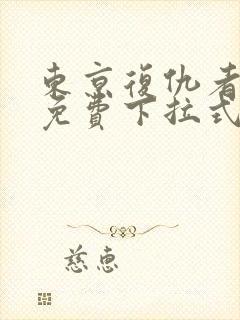 東京復仇者
免費下拉式
慈惠